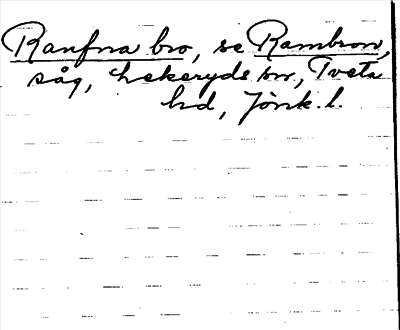 Ranfna bro, se Rambron,
såg, Lekeryds sn, Tveta
hd, Jönk. l.